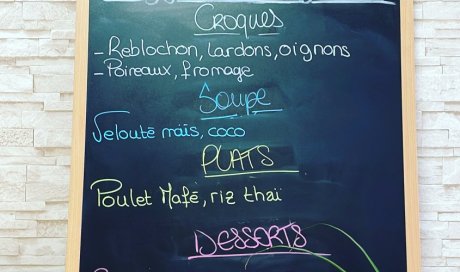 Croques
- Reblochon, lardons, oignons
- Poireaux, fromage
Soupe
Velouté maïs, coco
PLATS
Poulet Mafé, riz thaï
DESSERTS